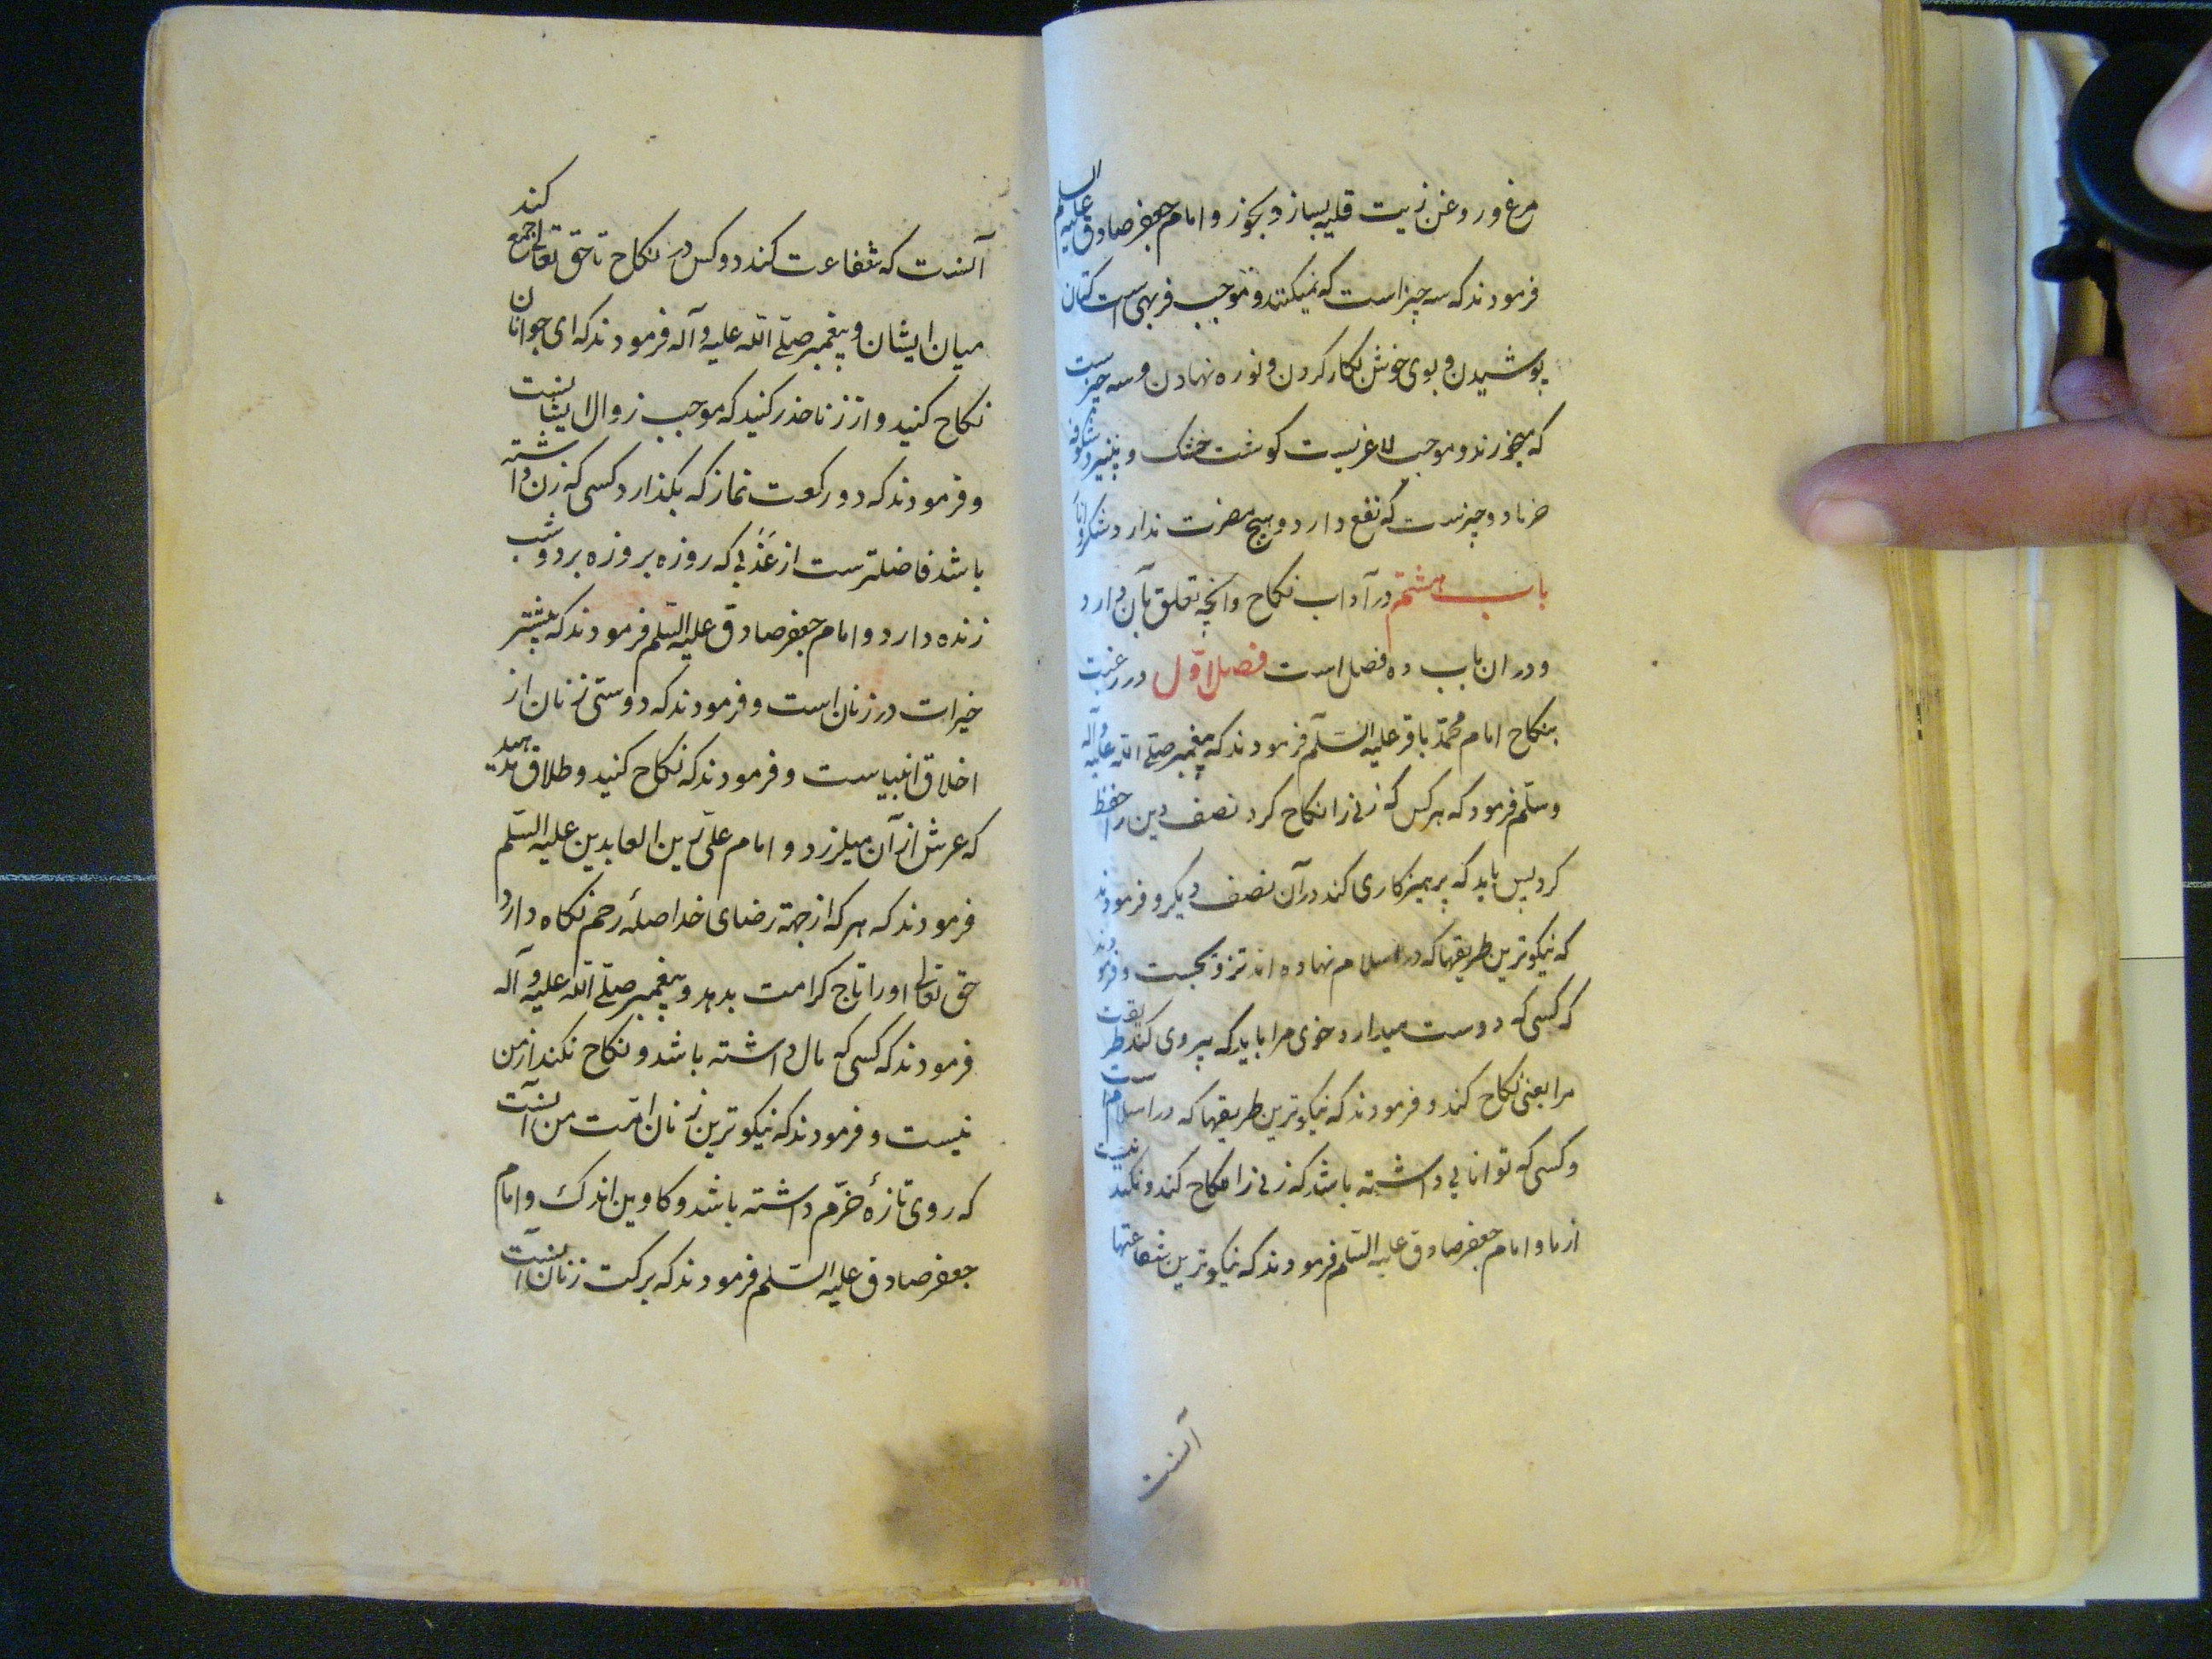 مرغ و روغن زیت قلیه بساز و بخور و امام جعفر صادق علیه السلم
فرمودند که سه چیز است که نمیکنند و موجب فربهی است کتان
پوشیدن و بوی خوش بکار کردن و نوره نهادن و سه چیزست
که میخورند و موجب لاغریست کوشت خشک و پنیر و شکوفه
خرما دو چیزست که نفع دارد و هیچ مضرت ندارد شکر و انار
باب هشتم در آداب نکاح و انچه تعلق بآن دارد
و در ان باب ده فصل است فصل اوّل در رغبت
بنکاح امام محمّد باقر علیه السّلم فرمودند که پیغمبر صلّے اللّه علیه وآله
وسلّم فرمود که هر کس که زنی را نکاح کرد نصف دین را حفظ
کرد پس باید که پرهیزکاری کند در آن نصف دیکر و فرمودند
که نیکوترین طریقها که در اسلام نهاده اند تزویجست و فرمودند
که کسی که دوست میدارد خوی مرا باید که پیروی کند طریقت
مرا یعنی نکاح کند و فرمودند که نیکوترین طریقها که در اسلام است
و کسی که توانایی داشته باشد که زنی را نکاح کند و نکند نیست
از ما و امام جعفر صادق علیه السّلم فرمودند که نیکوترین شفاعتها
آنست
آنست که شفاعت کند دو کس در نکاح تا حق تعالی جمع کند
میان ایشان و پیغمبر صلّے اللّه علیه و آله فرمودند که ای جوانان
نکاح کنید و از زنا حذر کنید که موجب زوال ایشانست
و فرمودند که دو رکعت نماز که بکذارد کسی که زن داشته
باشد فاضلترست از عَذَبی که روزه بروزه برد و شب
زنده دارد و امام جعفر صادق علیه السّلم فرمودند که بیشتر
خیرات در زنان است و فرمودند که دوستی زنان از
اخلاق انبیاست و فرمودند که نکاح کنید و طلاق مدهید
که عرش از آن میلرزد و امام علی زین العابدین علیه السّلم
فرمودند که هر که از جهة رضای خدا صلۀ رحم نکاه دارد
حق تعالی او را تاج کرامت بدهد و پیغمبر صلّے اللّه علیه و آله
فرمودند که کسی که مال داشته باشد و نکاح نکند از من
نیست و فرمودند که نیکوترین زنان امّت من آنست
که روی تازۀ خرّم داشته باشد و کاوین اندک و امام
جعفر صادق علیه السّلم فرمودند که برکت زنان آنست